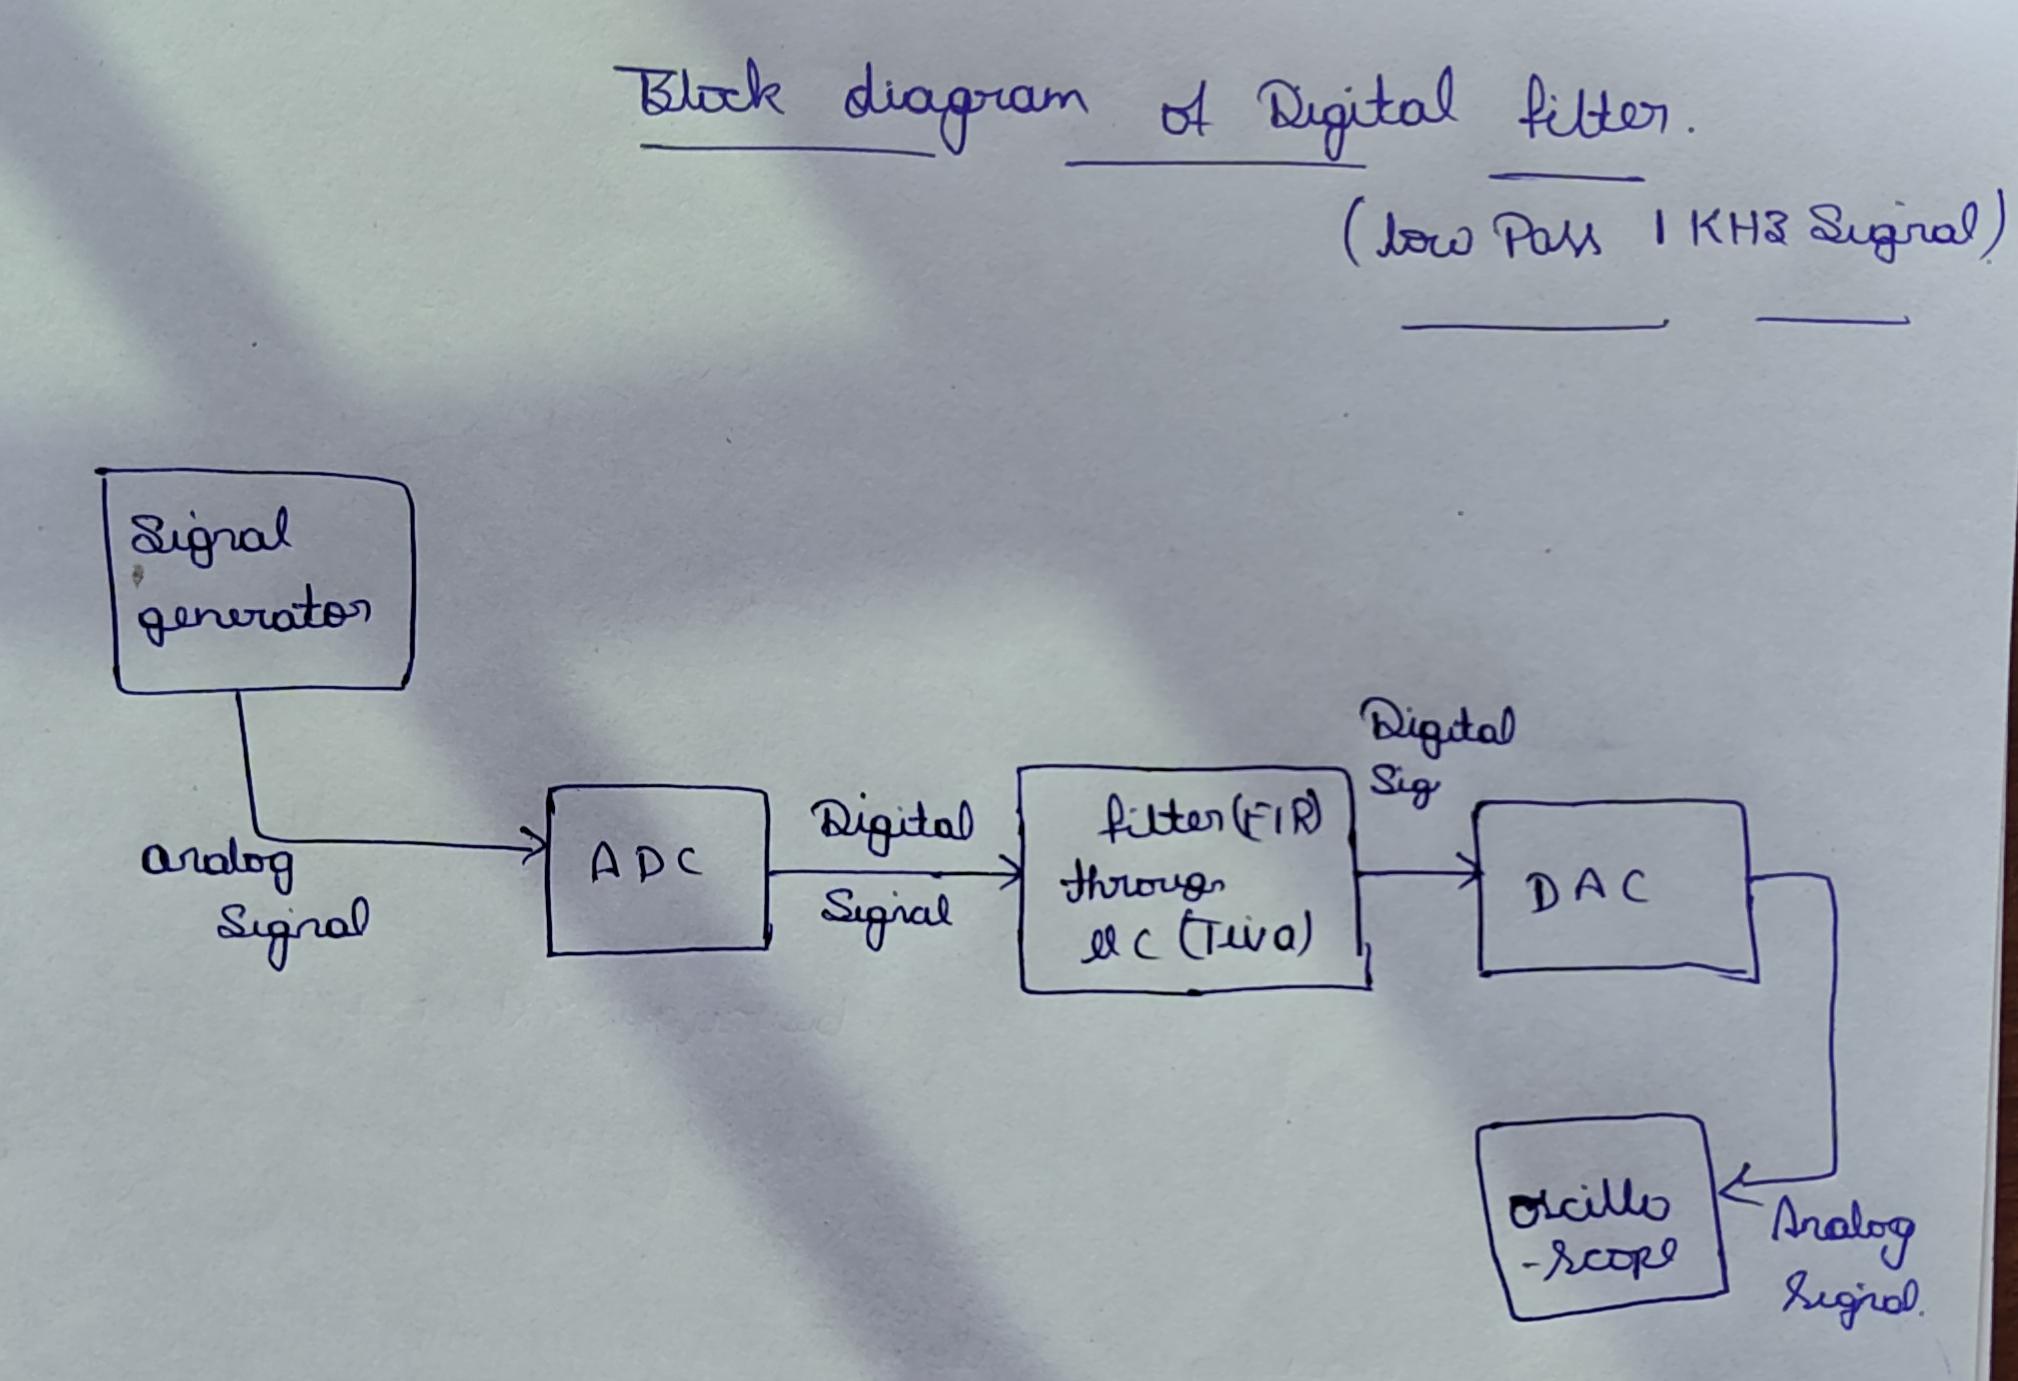 Block diagram of Digital filter.
(low Pass 1 KHz Signal)
Signal
generator
analog
Signal
ADC
Digital
Signal
filter (FIR)
through
µC (Tiva)
Digital
Sig
DAC
oscillo
-scope
Analog
Signal.